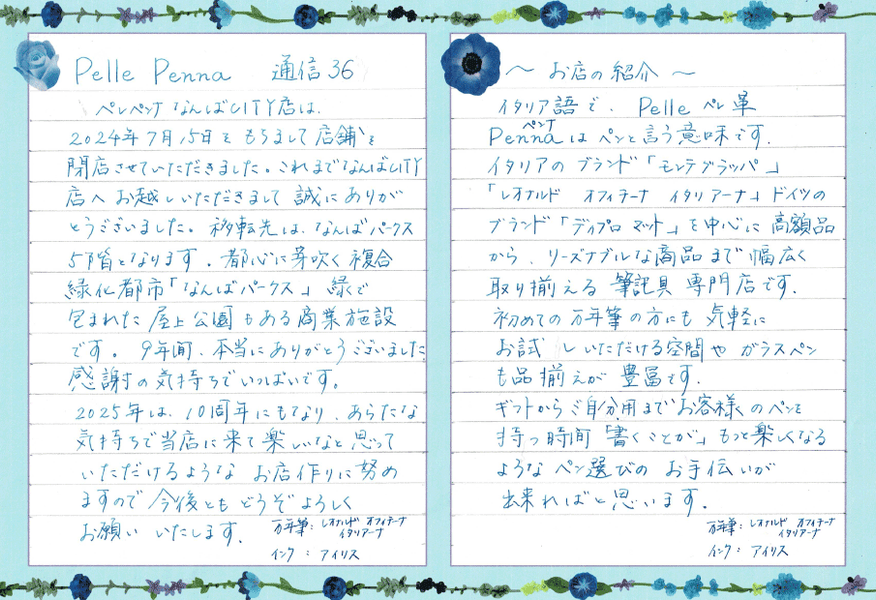 Pelle Penna 通信36
ペレペンナ なんばCITY店は、
2024年7月15日をもちまして店舗を
閉店させていただきました。これまでなんばCITY
店へお越しいただきまして誠にありが
とうございました。移転先は、なんばパークス
5階となります。都心に芽吹く複合
緑化都市「なんばパークス」緑で
包まれた屋上公園もある商業施設
です。9年間、本当にありがとうございました
感謝の気持ちでいっぱいです。
2025年は、10周年にもなり、あらたな
気持ちで当店に来て楽しいなと思って
いただけるようなお店作りに努め
ますので今後ともどうぞよろしく
お願いいたします。
万年筆:レオナルド オフィチーナ
イタリアーナ
インク:アイリス
～お店の紹介～
イタリア語で、Pelleペレ革
ペンナ
Pennaはペンと言う意味です。
イタリアのブランド「モンテグラッパ」
「レオナルド オフィチーナ イタリアーナ」ドイツの
ブランド「ディプロマット」を中心に高額品
から、リーズナブルな商品まで幅広く
取り揃える筆記具専門店です。
初めての万年筆の方にも気軽に
お試しいただける空間やガラスペン
も品揃えが豊富です。
ギフトからご自分用までお客様のペンを
持つ時間「書くことが」もっと楽しくなる
ようなペン選びのお手伝いが
出来ればと思います。
万年筆:レオナルド オフィチーナ
イタリアーナ
インク:アイリス